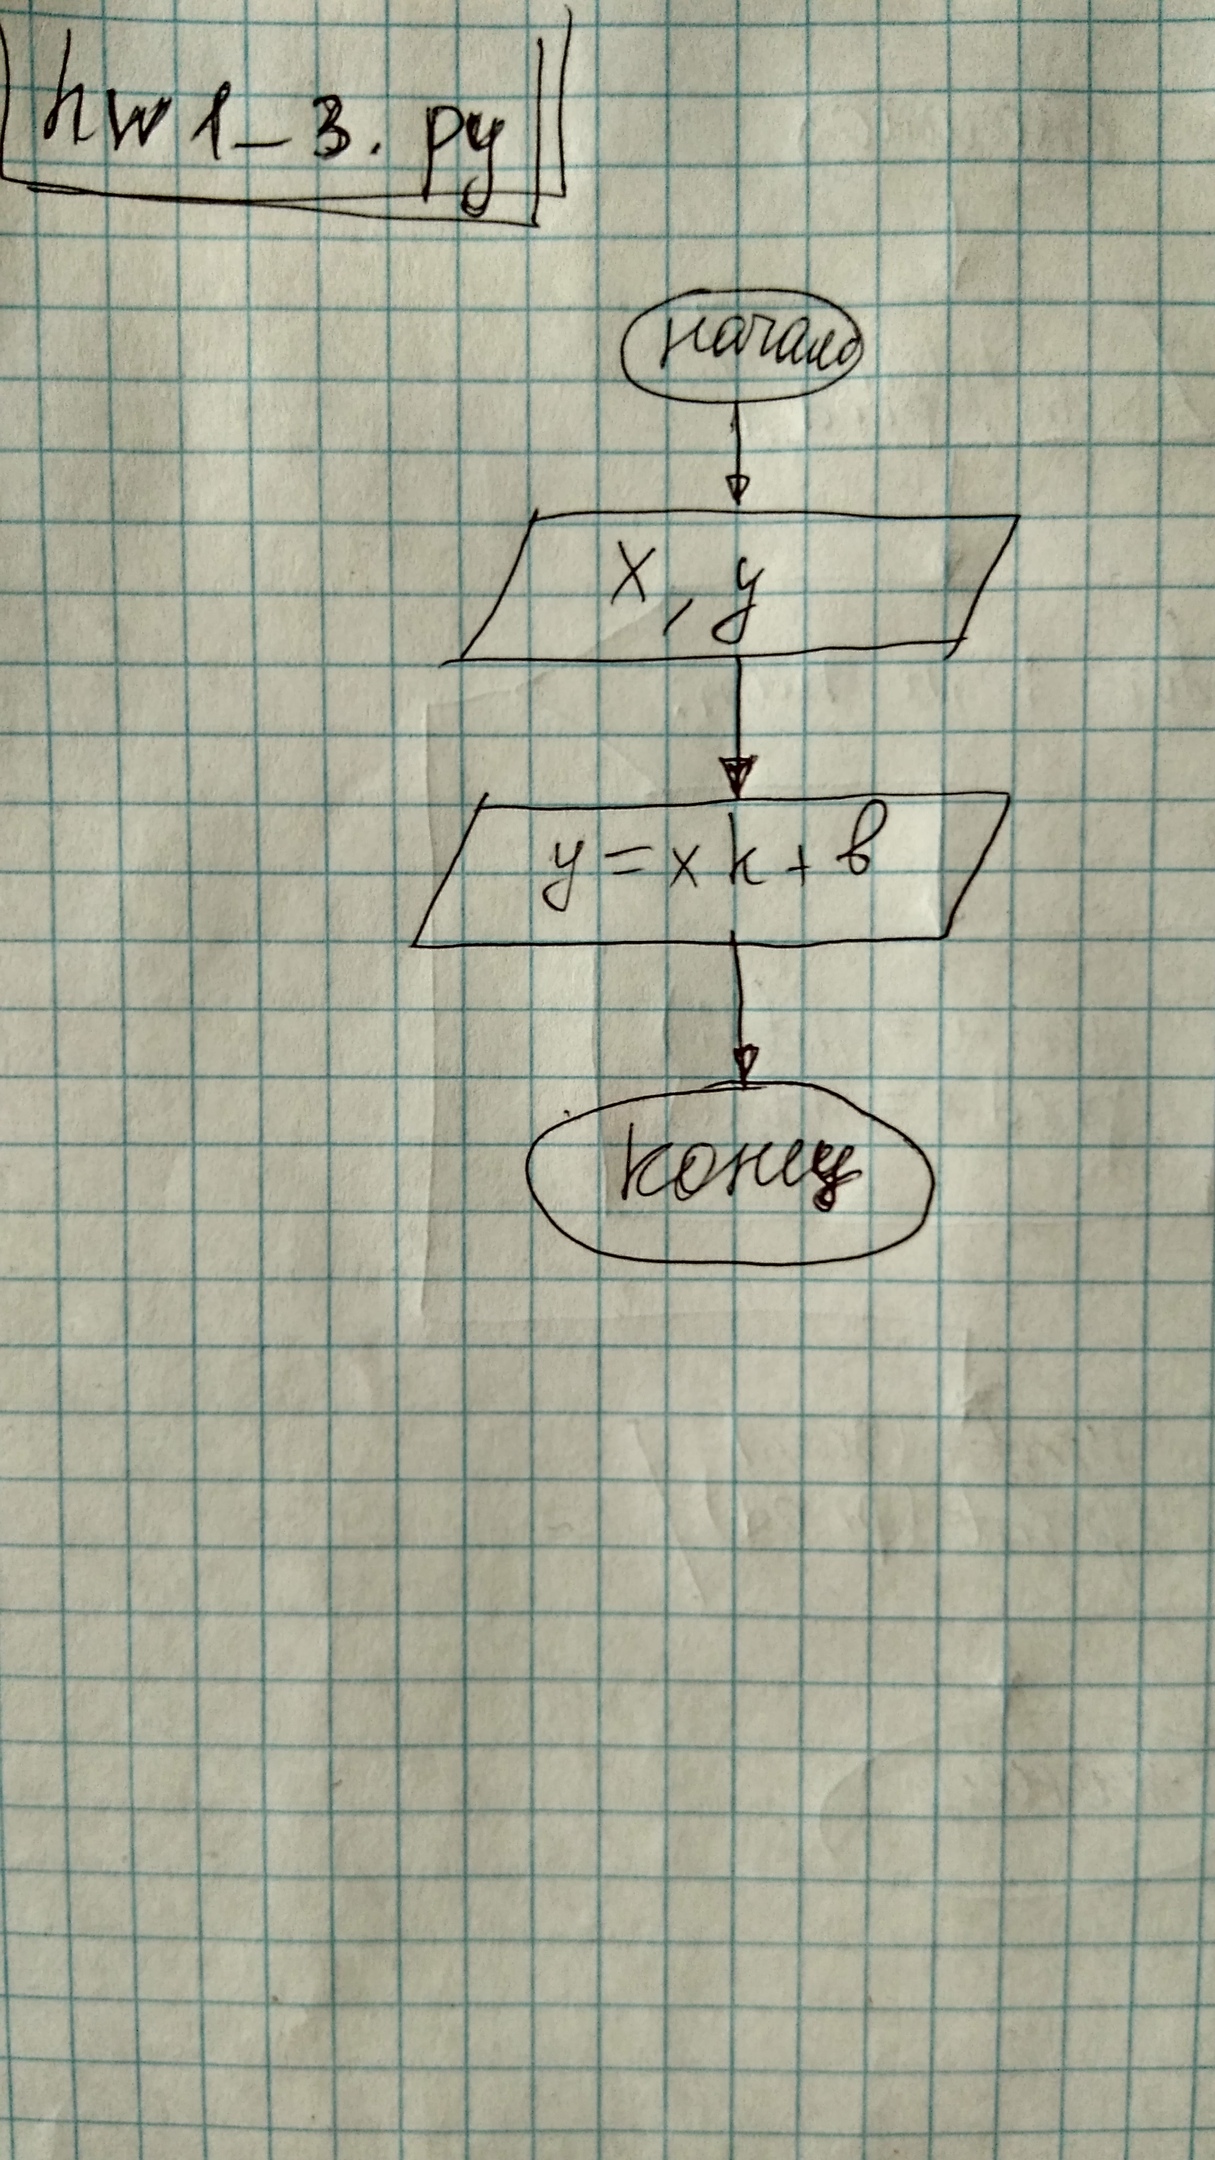 hw 1_3.py
начало
x, y
y = x k + b
конец